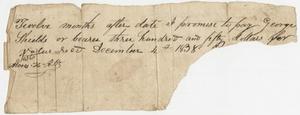 Twelve months after date I promise to pay George
Shields or bearer three hundred and fifty dollars for
value recd December 4th 1838